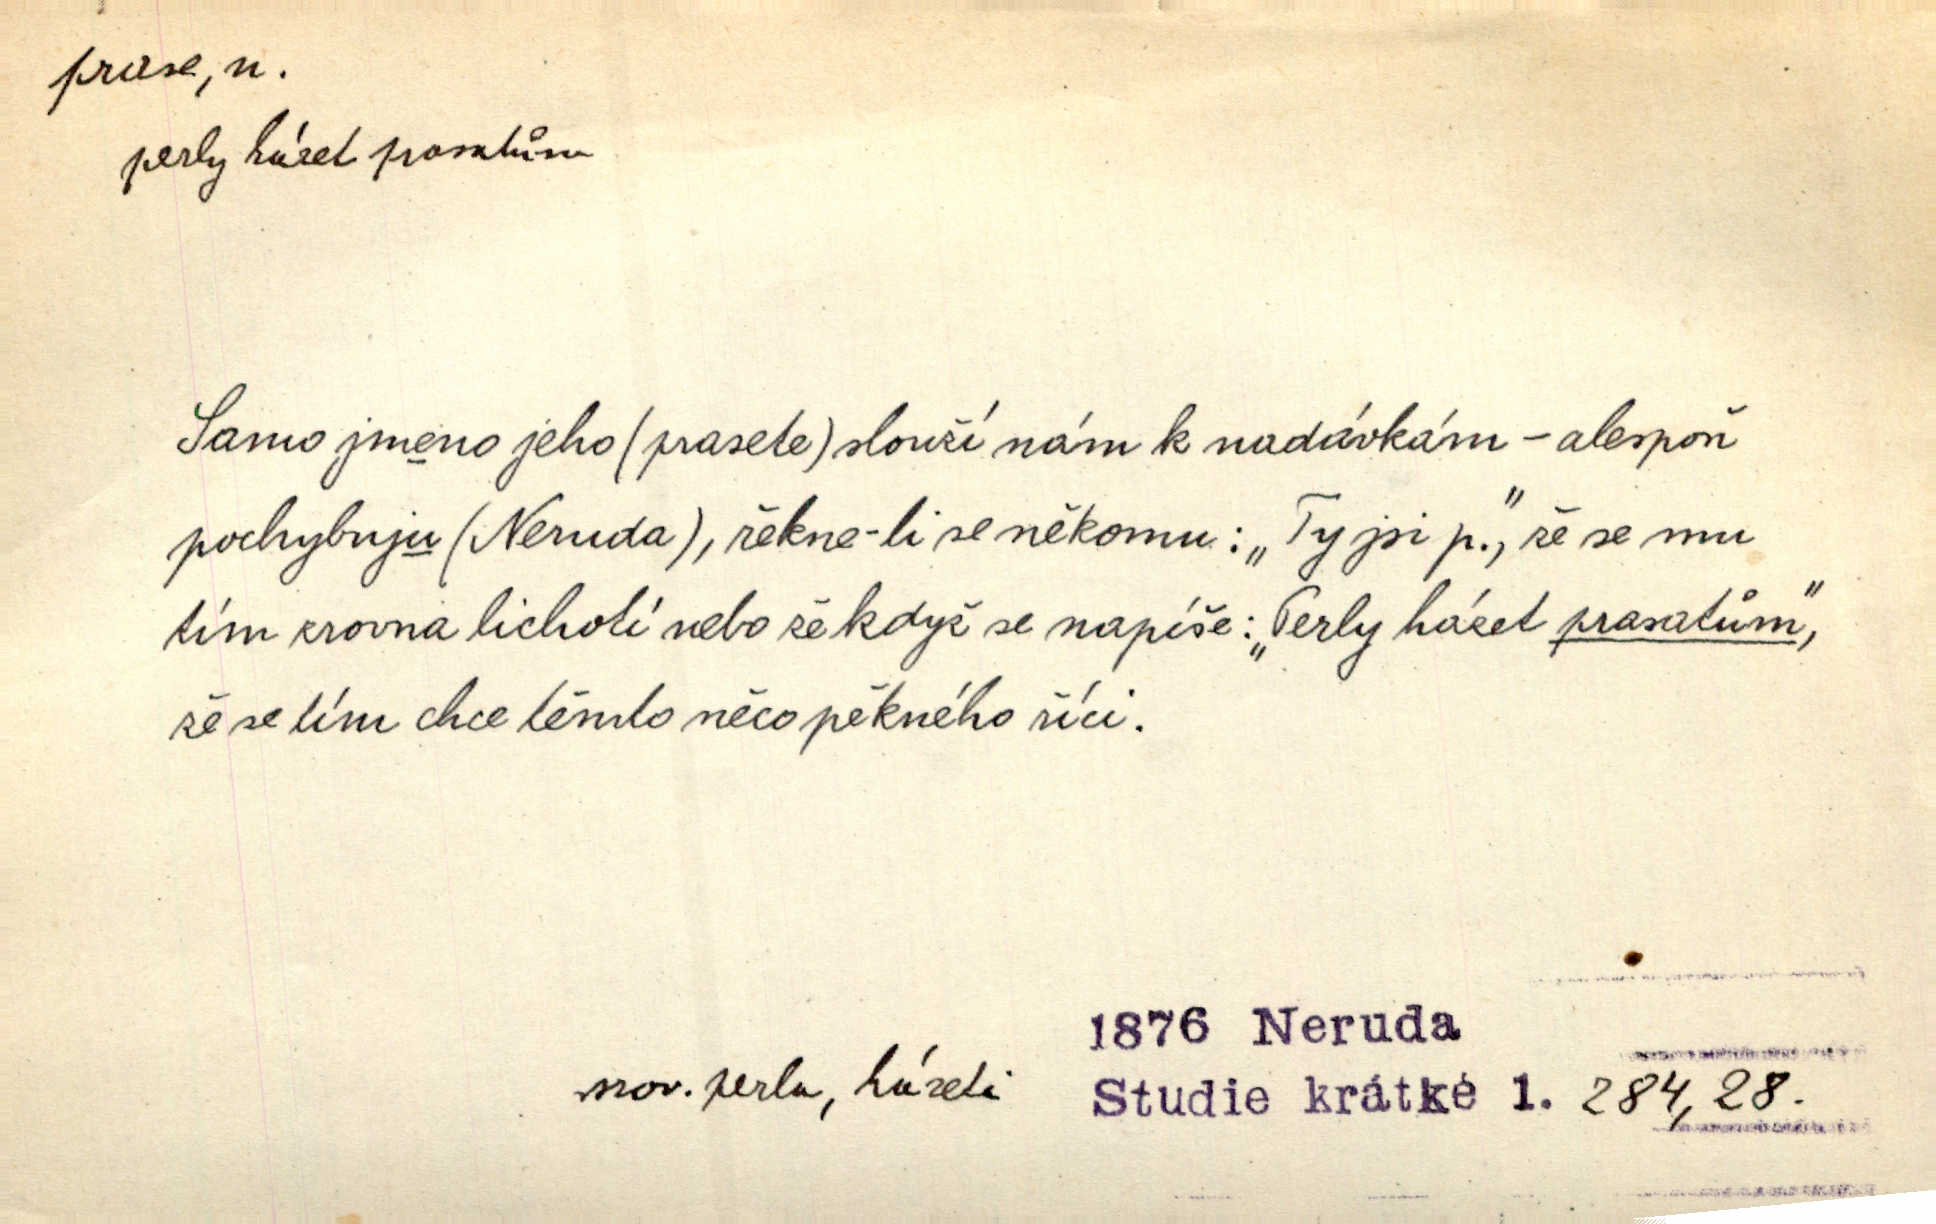 prase, n.
perly házet prasatům
Samo jmeno jeho (prasete) slouží nám k nadávkám – alespoň
pochybuju (Neruda), řekne-li se někomu: „Ty jsi p.", že se mu
tím zrovna lichotí nebo že když se napíše: „Perly házet prasatům",
že se tím chce těmto něco pěkného říci.
1876 Neruda
srov. perla, házeti
Studie krátké 1. 284, 28.